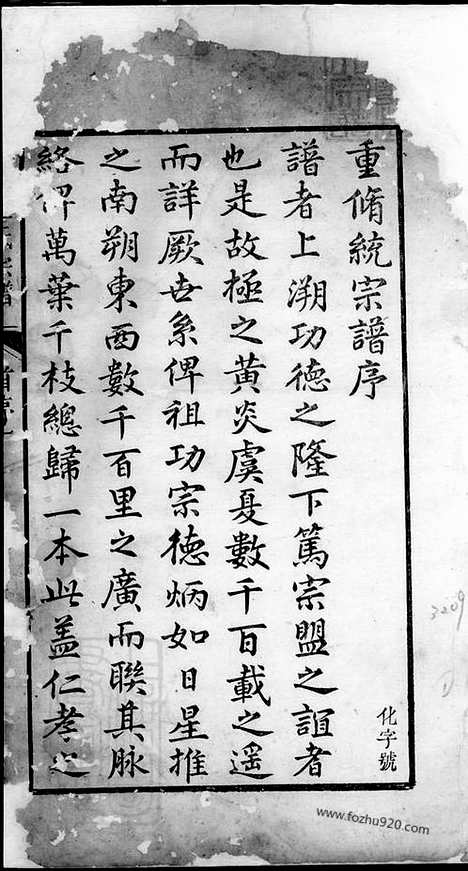 重脩統宗譜序
譜者上溯功德之隆下篤宗盟之誼者
也是故極之黃炎虞夏數千百載之遥
而詳厥世系俾祖功宗德炳如日星推
之南朔東西數千百里之廣而聯其脉
絡俾萬葉千枝總歸一本此盖仁孝之
化字號
3209
www.fozhu920.com